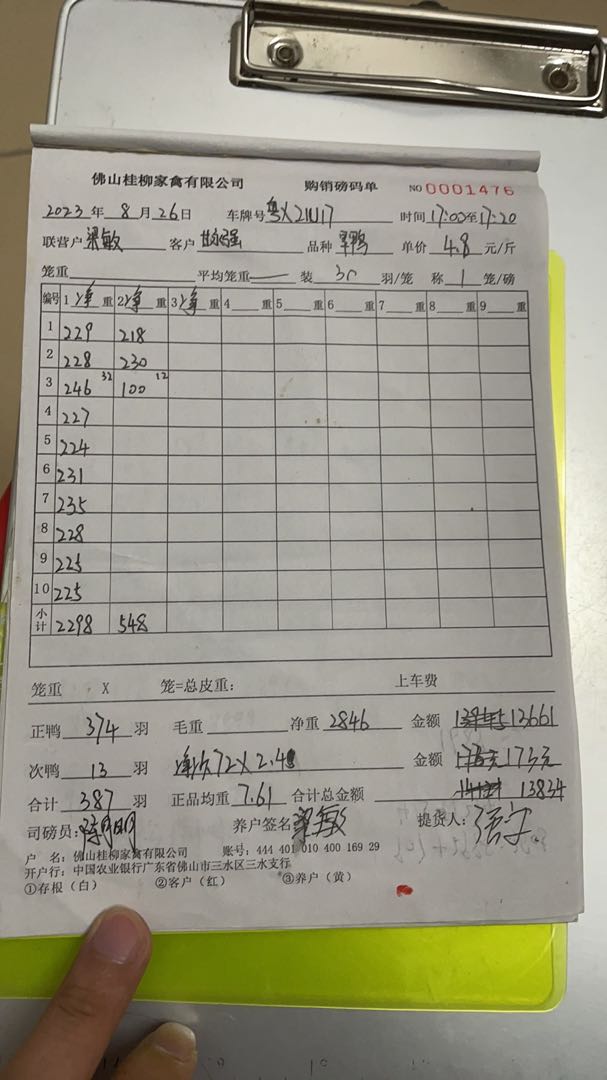 佛山桂柳家禽有限公司 购销磅码单 NO 0001476
2023 年 8 月 26 日 车牌号 粤X21U17 时间 17:00至17:20
联营户 梁敏 客户 强 品种 鸭 单价 4.8 元/斤
笼重: 平均笼重 — 装 30 羽/笼 称 1 笼/磅
编号 1 净 重 2 净 重 3 净 重 4 重 5 重 6 重 7 重 8 重 9 重
1 229 218
2 228 230
3 246 32 100 12
4 227
5 224
6 231
7 235
8 228
9 225
10 225
小计 2298 548
笼重 X 笼=总皮重: 上车费
正鸭 374 羽 毛重 净重 2846 金额 13661
次鸭 13 羽 72X2.4 金额 173元
合计 387 羽 正品均重 7.61 合计总金额 13834
司磅员: 养户签名 梁敏 提货人:
户 名: 佛山桂柳家禽有限公司 账号: 444 401 010 400 169 29
开户行: 中国农业银行广东省佛山市三水区三水支行
①存根（白） ②客户（红） ③养户（黄）